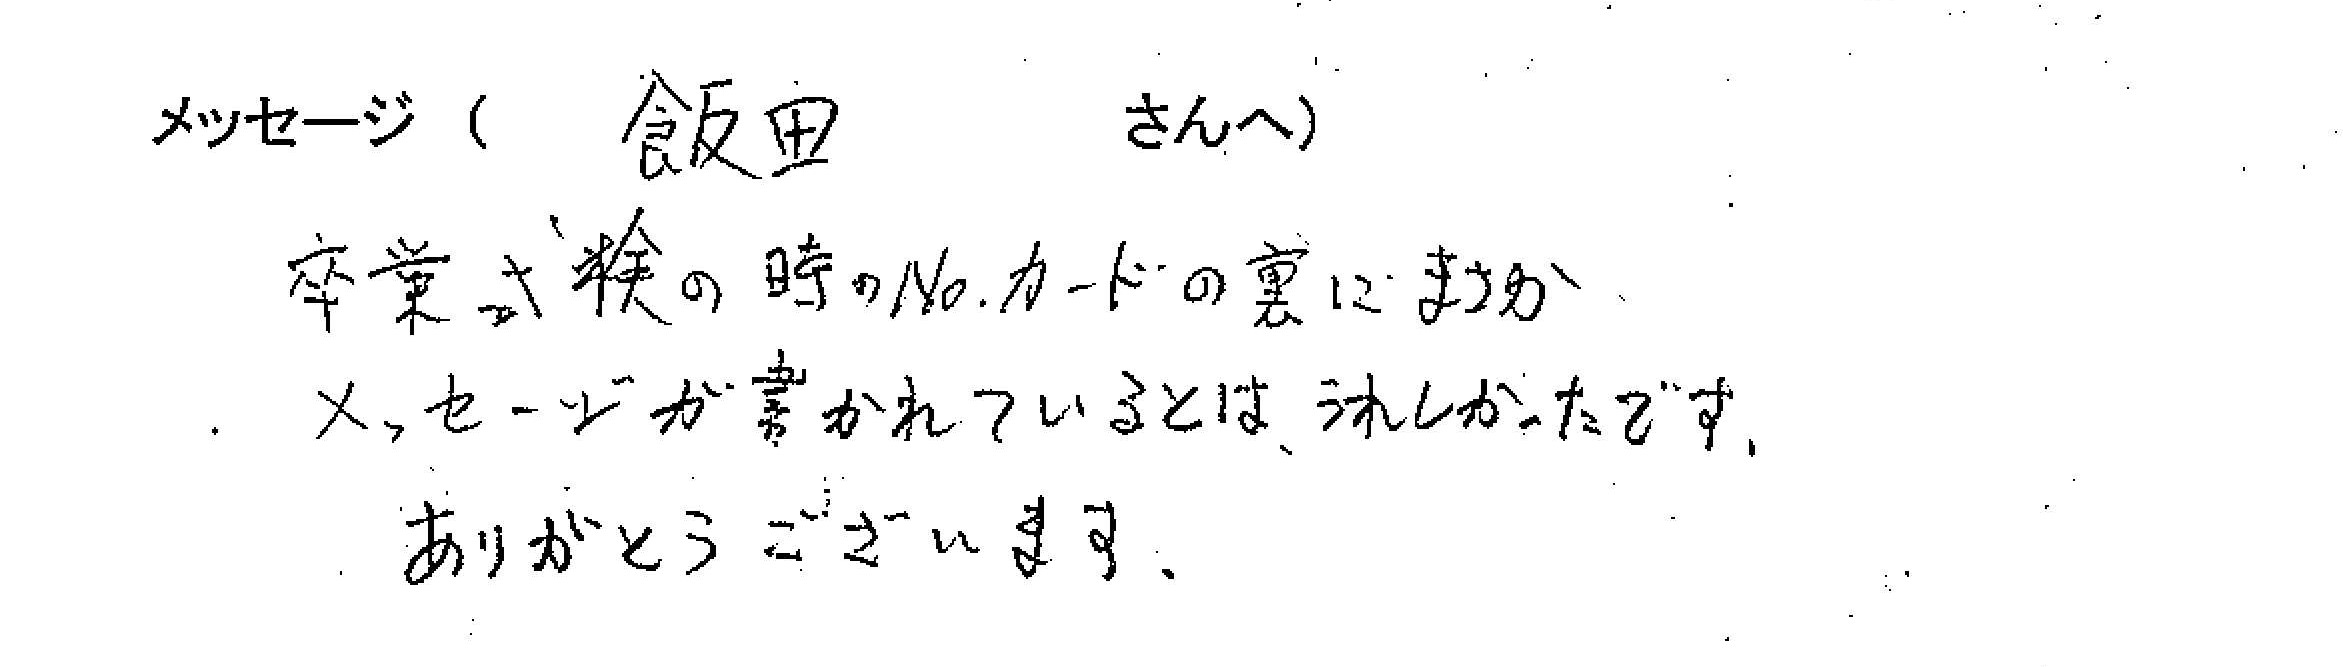 メッセージ（　飯田　さんへ）
卒業式検の時のNo.カードの裏にまさか
メッセージが書かれているとは、うれしかったです、
ありがとうございます、